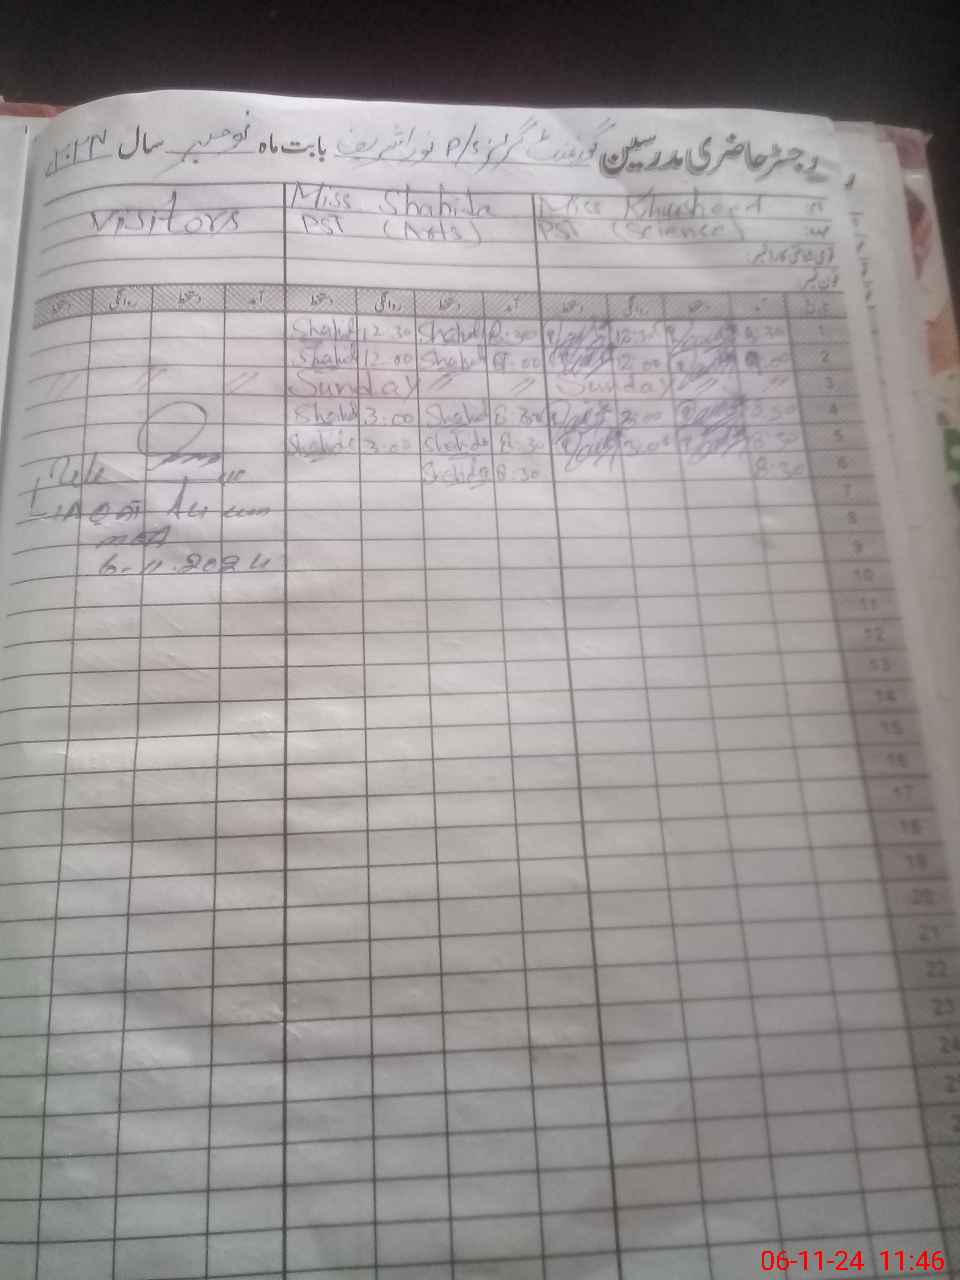 رجسٹر حاضری مدرسین گورنمنٹ گرلز P/S نورا شریف بابت ماہ نومبر سال ۲۰۲۴
Visitors Miss Shahida Miss Khursheed نام
PST (Arts) PST (Science) عہدہ
قومی شناختی کارڈ نمبر:
فون نمبر:
دستخط روانگی دستخط آمد دستخط روانگی دستخط آمد دستخط روانگی دستخط آمد
Shahid 12.30 Shahid 8:30 12:30 8:30 1
Shahid 12.00 Shahid 9.00 12.00 9.00 2
〃 〃 〃 Sunday 〃 〃 Sunday 〃 〃 3
Shahid 3.00 Shahid 8.30 3.00 8.30 4
Shahida 3.00 Shahida 8.30 3.00 8.30 5
Shahida 8.30 8:30 6
7
8
9
6-11.2024
10
11
12
13
14
15
16
17
18
19
20
21
22
23
24
06-11-24 11:46